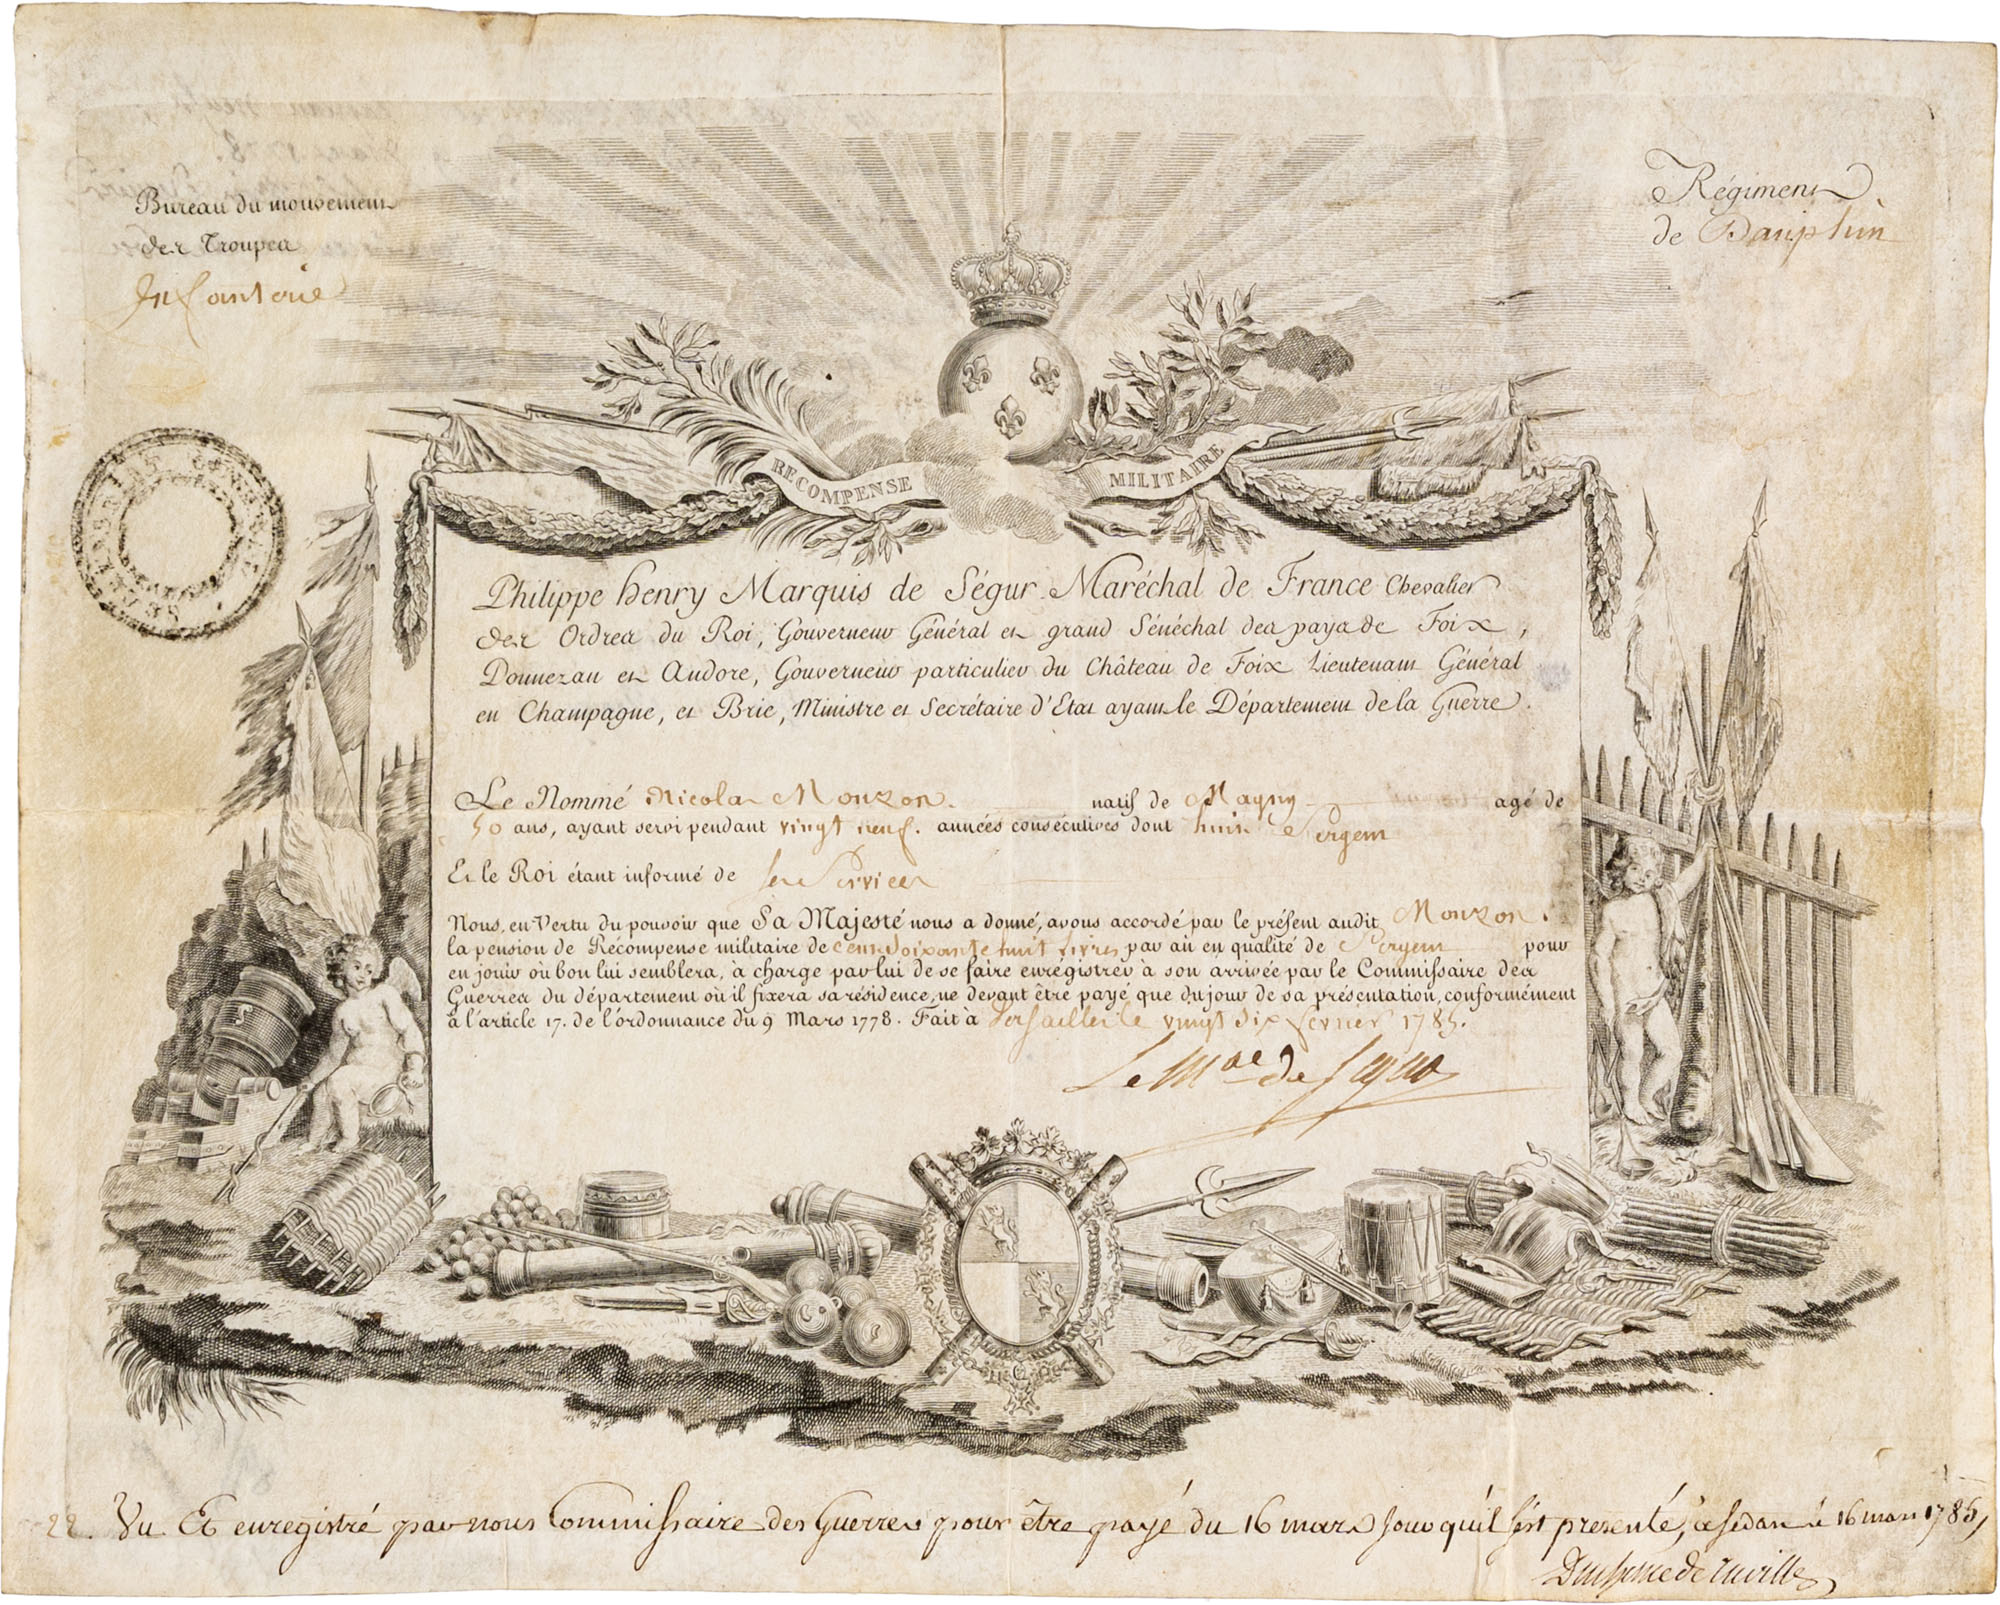 Bureau du mouvement
des Troupes
Infanterie
Régiment
de Dauphin
RECOMPENSE MILITAIRE
Philippe henry Marquis de Ségur Maréchal de France Chevalier
des Ordres du Roi, Gouverneur Général et grand Sénéchal des pays de Foix,
Donnezan et Andore, Gouverneur particulier du Château de Foix Lieutenant Général
en Champagne, et Brie, Ministre et Secrétaire d'Etat ayant le Département de la Guerre.
Le Nommé Nicolas Mouzon natif de Magny agé de
50 ans, ayant servi pendant vingt neuf années consécutives dont huit Sergent
Et le Roi étant informé de ses Services
Nous, en Vertu du pouvoir que Sa Majesté nous a donné, avons accordé par le présent audit Mouzon.
la pension de Récompense militaire de cent Soixante huit livres par an en qualité de Sergent pour
en jouir où bon lui semblera, à charge par lui de se faire enrégistrer à son arrivée par le Commissaire des
Guerres du département où il fixera sa résidence, ne devant être payé que du jour de sa présentation, conformément
à l'article 17. de l'ordonnance du 9 Mars 1778. Fait à Versailles le vingt six fevrier 1785.
Le Mal de Ségur
22. Vu Et enregistré par nous Commissaire des Guerres pour être payé du 16 mars jour qu'il s'est presenté, a sedan le 16 mars 1785,